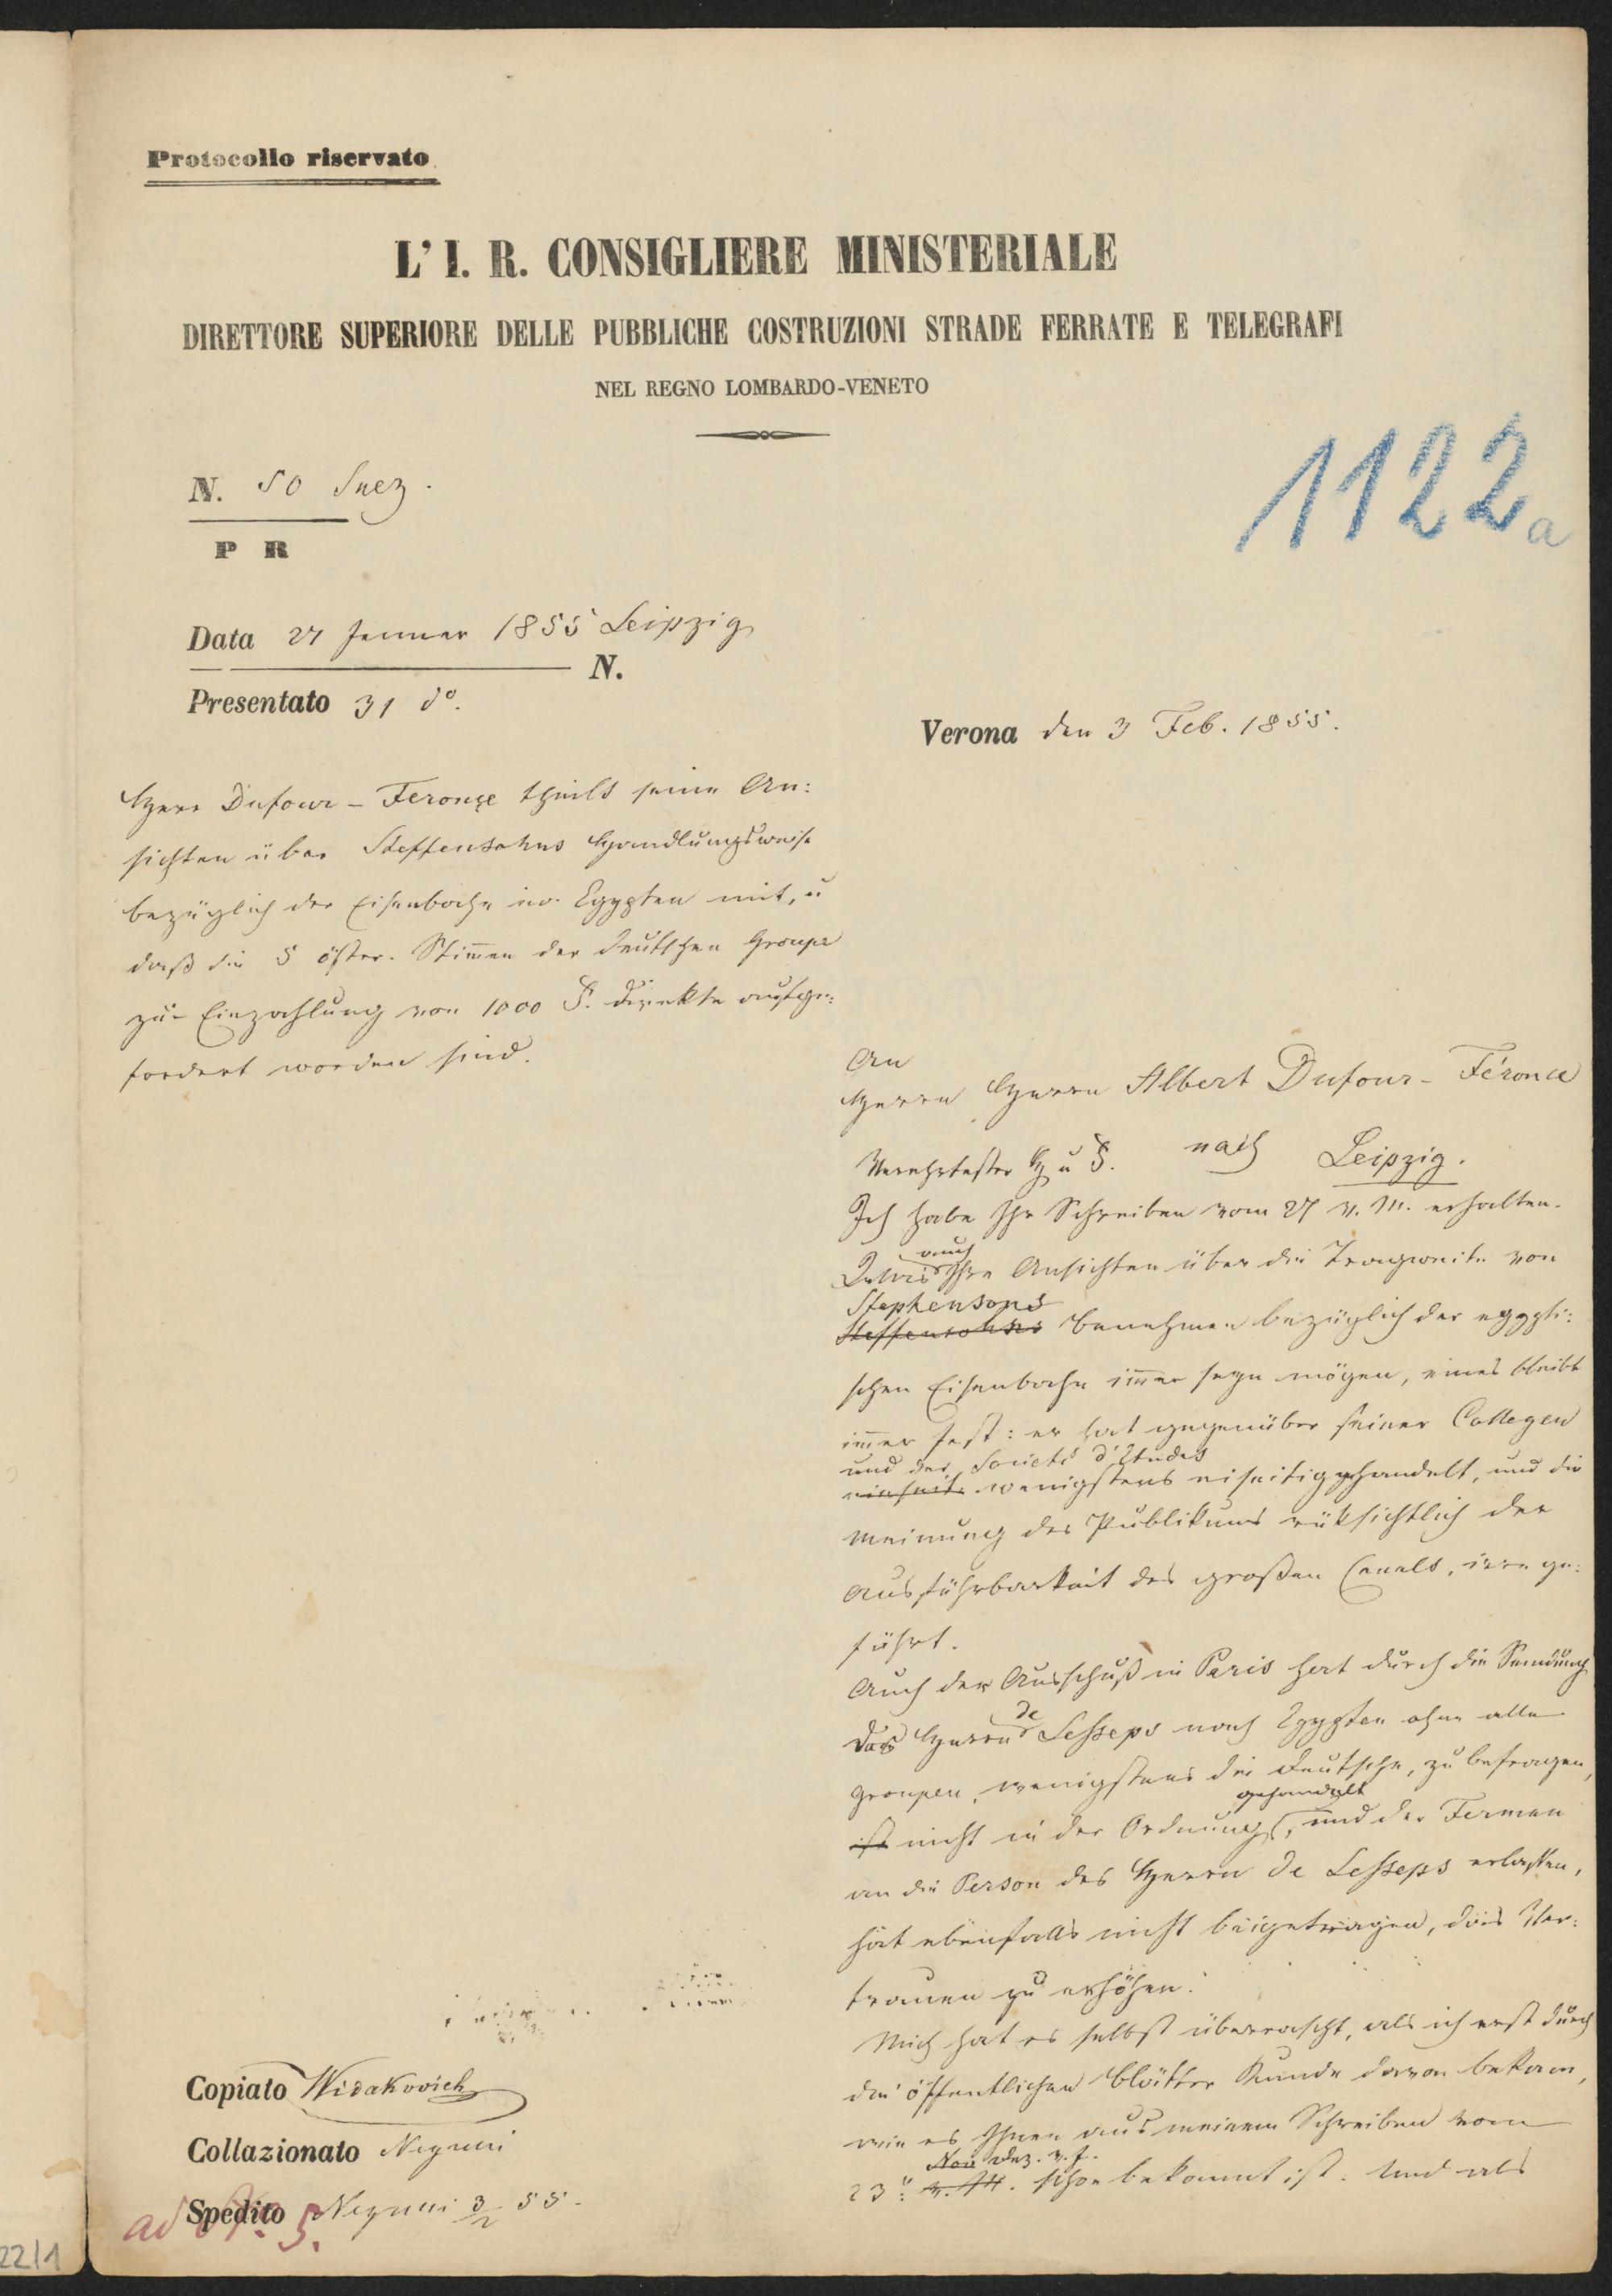 Protocollo riservato
L' I. R. CONSIGLIERE MINISTERIALE
DIRETTORE SUPERIORE DELLE PUBBLICHE COSTRUZIONI STRADE FERRATE E TELEGRAFI
NEL REGNO LOMBARDO-VENETO
1122a
N. 50 Suez.
P R
Data 27 Jenner 1855 Leipzig
N.
Presentato 31 do.
Verona den 3 Feb. 1855.
Herr Dufour-Feronçe theilt seine An:
sichten über Steffensohns Handlungsweise
bezüglich der Eisenbahn in Egypten mit, u
daß die 5 öster. Stimen der deutschen Groupe
zur Einzahlung von 1000 F. direkte aufge:
fordert worden sind.
An
Herrn Herrn Albert Dufour-Féronce
nach Leipzig.
Verehrtester H u F.
Ich habe Ihr Schreiben vom 27 v. M. erhalten.
auch
Ihre Ansichten über die Tragweite von
Stephensons
Steffensohns Benehmen bezüglich der egypti:
schen Eisenbahn imer seyn mögen, eines bleibt
imer fest: er hat gegenüber seiner Collegen
und der Societé d'Etudes
einseit. wenigstens eiseitig gehandelt, und die
Meinung des Publikums rüksichtlich der
Ausführbarkeit des großen Canals, irre ge:
führt.
Auch der Ausschuß in Paris hat durch die Sendung
de
des Herrn Lesseps nach Egypten ohne alle
Groupen, wenigstens die deutsche, zu befragen,
gehandelt
ist nicht in der Ordnung, und der Ferman
an die Person des Herrn de Lesseps erlassen,
hat ebenfalls nicht beigetragen, das Ver:
trauen zu erhöhen.
Mich hat es selbst überrascht, als ich erst durch
die öffentlichen Blätter Kunde davon bekam,
wie es Ihnen aus meinem Schreiben vom
Dez. v. J.
23: v. M. schon bekannt ist. Und als
Copiato Widakovich
Collazionato Negrini
Spedito Negrini 3/2 55.
ad N. 5.
22/1